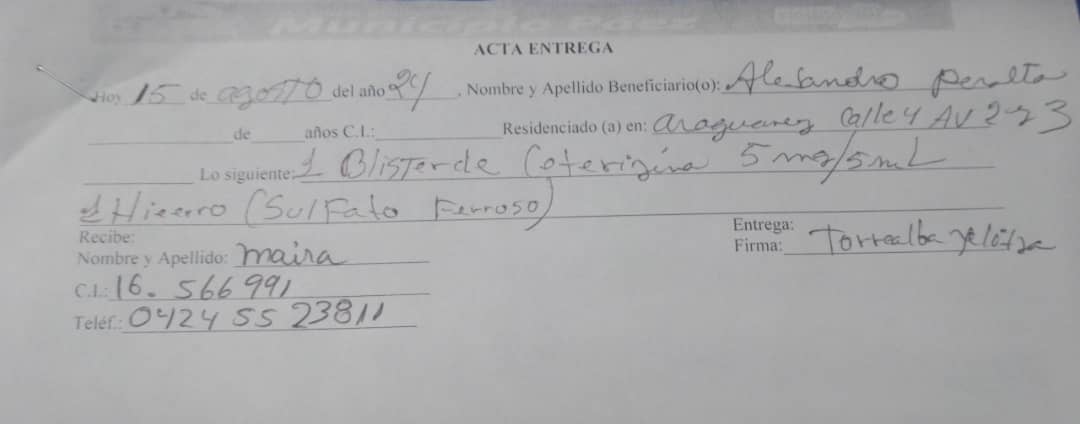 Municipio Páez
ACTA ENTREGA
Hoy 15 de agosto del año 24, Nombre y Apellido Beneficiario(o): Alejandro Peralta
de años C.I.: Residenciado (a) en: araguaney Calle 4 AV 2 y 3
Lo siguiente: 1 Blister de Ceterizina 5 mg/5mL
1 Hierro (Sulfato Ferroso)
Recibe:
Entrega:
Nombre y Apellido: maira
Firma: Torrealba
C.I.: 16. 566 991
Teléf.: 0424 55 23811